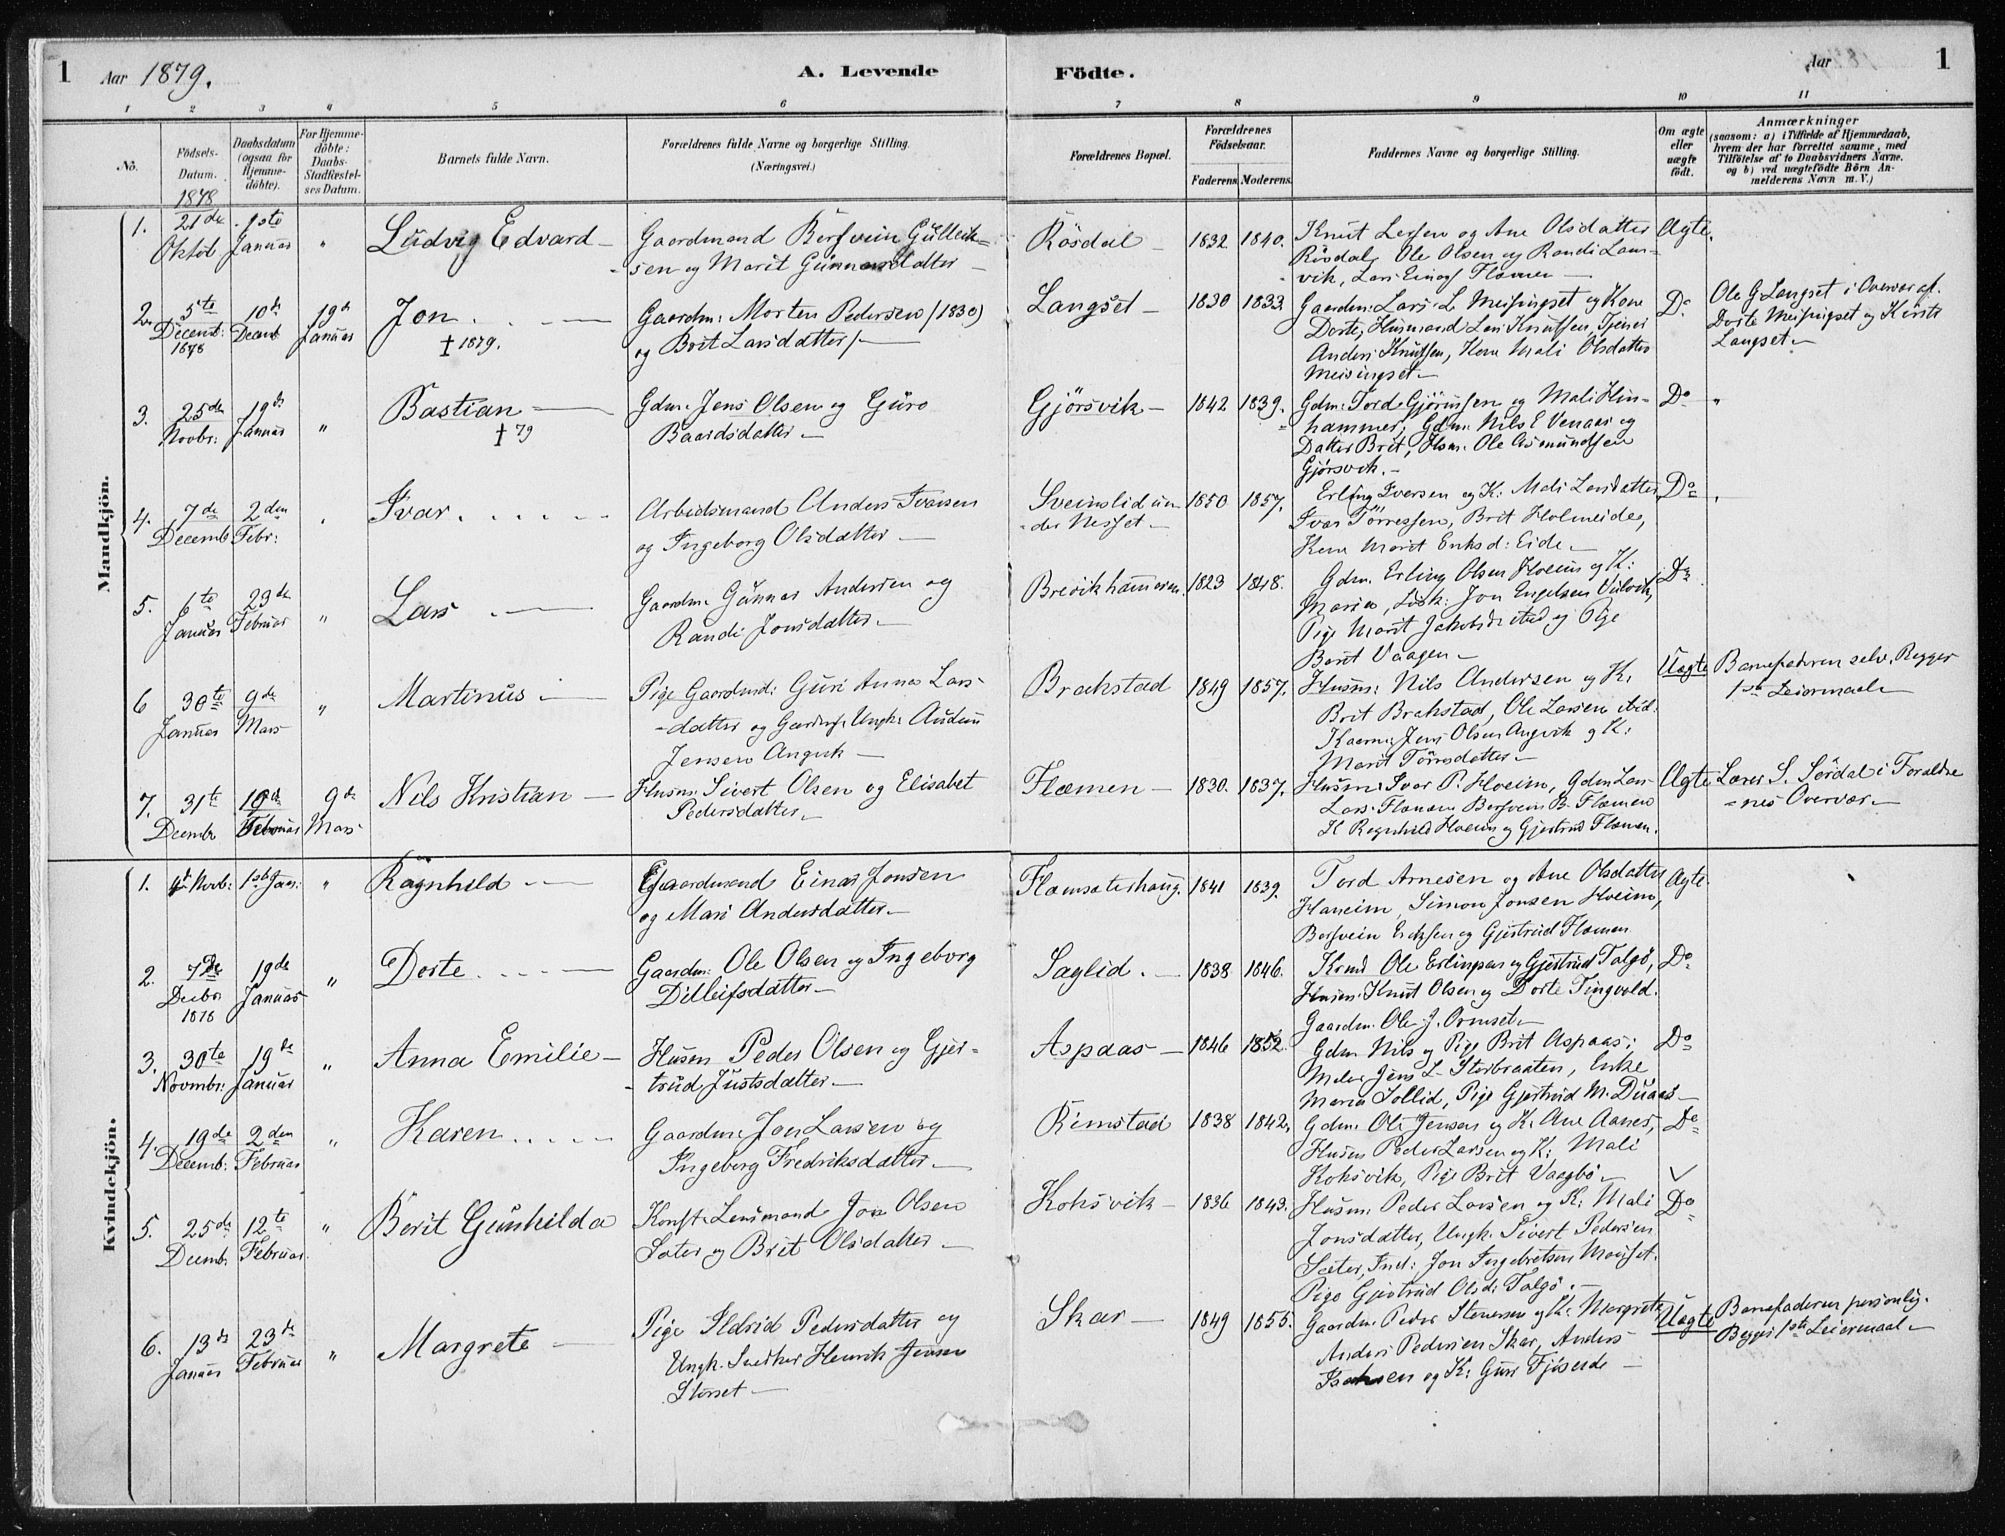 1 Aar 1879. A. Levende Födte. Aar 1
1 2 3 4 5 6 7 8 9 10 11
Nö. Födsels-Datum. Daabsdatum (ogsaa for Hjemmedöbte). For Hjemmedöbte: Daabs-Stadfæstelses Datum. Barnets fulde Navn. Forældrenes fulde Navne og borgerlige Stilling. (Næringsvei.) Forældrenes Bopæl. Forældrenes Födselsaar. Faderens. Moderens. Faddernes Navne og borgerlige Stilling. Om ægte eller uægte födt. Anmærkninger (saasom: a) i Tilfælde af Hjemmedaab, hvem der har forrettet samme, med Tilföielse af to Daabsvidners Navne. og b) ved uægtefödte Börn Anmelderens Navn m. V.)
Mandkjön.
1878
1. 21de Oktob 1ste Januar " Ludvig Edvard Gaardmand Bersvein Gullik- Rösdal 1832 1840. Knut Larsen og Ane Olsdatter Ægte.
sen og Marit Gunnarsdatter Rösdal, Ole Olsen og Randi Lam-
vik, Lars Einars Flæmen
2. 5te Decemb: 1878 10de Decemb 19de Januar Jon Gaardm: Morten Pedersen (1830) Langset 1830 1833. Gaardm: Lars L. Meisingset og Kone Do Ole G Langset i Overvær af
† 1879. og Brit Larsdatter Dorte, Husmand Lars Knutsen, Tjener Dorte Meisingset og Kirsti
Anders Knutsen, Kone Mali Olsdatter Langset
Meisingset
3. 25de Novbr: 19de Januar " Bastian Gdm: Jens Olsen og Guro Gjörsvik 1842 1839. Gdm: Tord Gjörussen og Mali Hin- Do "
† 79 Baardsdatter hammer, Gdm: Nils E Venaas og
Datter Brit, Hsm: Ole Asmundsen
Gjörsvik.
4. 7de Decemb 2den Febr: Ivar Arbeidsmand Anders Ivarsen Sveinslid un- 1850 1857. Erling Iversen og K: Mali Larsdatter, Do
og Ingeborg Olsdatter der Nesset Ivar Törressen, Brit Holmeide,
Kone Marit Eriksd: Eide
5. 6te Januar 23de Februar " Lars Gaardm: Gunnar Andersen og Brevikhammeren 1823 1848. Gdm. Erling Olsen Hoeim og K: Do
Randi Jonsdatter Maria, Jon Engelsen
Pige Marit og Pige
Berit Vaagen
6 30te Januar 9de Mars " Martinus Pige Gaardmd: Guri Anna Lars- Brakstad 1849 1857. Husm: Nils Andersen og K: Uægte Barnefaderen selv. Begges
datter og Ungk: Audun Brit Brakstad, Ole Larsen ibid. 1ste Leiermaal
Jensen Angvik Jens Olsen Angvik og K:
Marit Törrisdatter
7. 31te Decembr 10de Februar 9de Mars Nils Kristian Husm: Sivert Olsen og Elisabet Flæmen 1830. 1837. Husm: Ivar P. Hoeim, Gdm Lars Ægte Lærer S. Sördal i Foreldre
Pedersdatter Lars: Flæmen Bersvein B. Flæmen nes Overvær
K Regnhild Hoeim og Gjertrud Flæmen.
Kvindekjön.
1. 4de Novb: 1ste Jan: " Ragnhild Gaardmand Einar Jonsen Flæmsæterhaug. 1841 1839. Tord Arnesen og Ane Olsdatter Ægte
og Mari Andersdatter Simon Jonsen Hoeim,
Bersvein Eriksen og Gjertrud Flæmen
2. 7de Decbr 1878 19de Januar " Dorte Gaardm: Ole Olsen og Ingeborg Saglid 1838 1846. Ole Erlingsen og Gjertrud Talgö, Do
Dilleifsdatter Husm: Knut Olsen og Dorte Tingvold.
Gaardm: Ole J. Ormset
3. 30te Novmbr: 19de Januar " Anna Emilie Husm Peder Olsen og Gjer- Aspaas 1846 1852. Gdm Nils og Pige Brit Aspaas: Do
trud Justsdatter Maler Jens L. Storbraaten, Enke
Maria Sollid, Pige Gjertrud M.
4. 19de Decemb: 2den Februar " Karen Gaardm: Jon Larsen og Rimstad 1838 1842, Gdm: Ole Jensen og K: Ane Aanes, Do
Ingeborg Fredriksdatter Husm Peder Larsen og K: Mali
Kohsvik, Pige Brit Vaagbö
5. 25de Decemb 12te Februar. " Berit Gunhilda Konst: Lensmand Jon Olsen Kohsvik 1836 1843. Husm: Peder Larsen og K: Mali Do
Sæter og Brit Olsdatter Jonsdatter, Ungk: Sivert Pedersen
Sæter, Ind: Jon Ingebretsen
Pige Gjertrud Olsd: Talgö.
6. 13de Januar 23de Februar " Margrete Pige Ildrid Pedersdatter og Skar 1849 1855. Gaardm: Peder Stenersen og K: Margrete Uægte Barnefaderen personlig.
Ungk: Snedker Henrik Jensen Anders Pedersen Skar, Anders Begges 1ste Leiermaal
Storset Isaksen og K: Guri Fjöseide